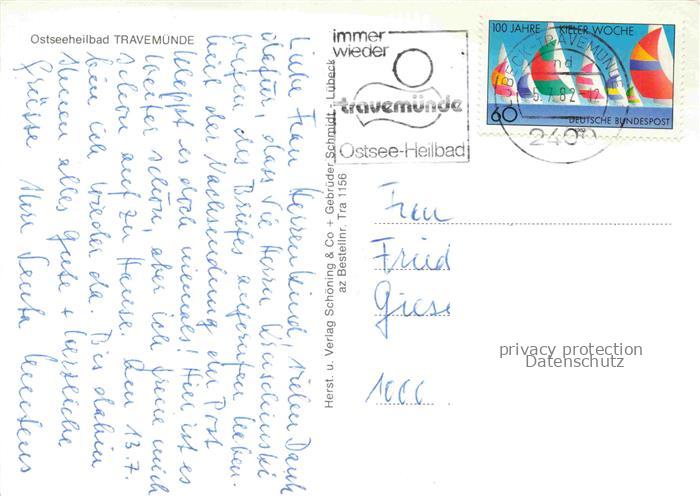 Ostseeheilbad TRAVEMÜNDE
immer
wieder
travemünde
Ostsee-Heilbad
100 JAHRE KIELER WOCHE
LÜBECK-TRAVEMÜNDE
nd
-5.7.82-12
2400
60
DEUTSCHE BUNDESPOST
1982
Liebe Frau Herzenkind, vielen Dank
dafür, daß Sie Herrn
des Briefes angerufen haben.
Mit der Nachsendung der Post
klappt es doch niemals! Hier ist es
weiter schön, aber ich freue mich
schon auf zu Hause. Am 13.7.
bin ich wieder da. Bis dahin
Ihnen alles Gute + herzliche
Grüsse Ihre
Herst. u. Verlag Schöning & Co + Gebrüder Schmidt - Lübeck
az Bestellnr. Tra 1156
Frau
Fried
Giese
1000
privacy protection
Datenschutz